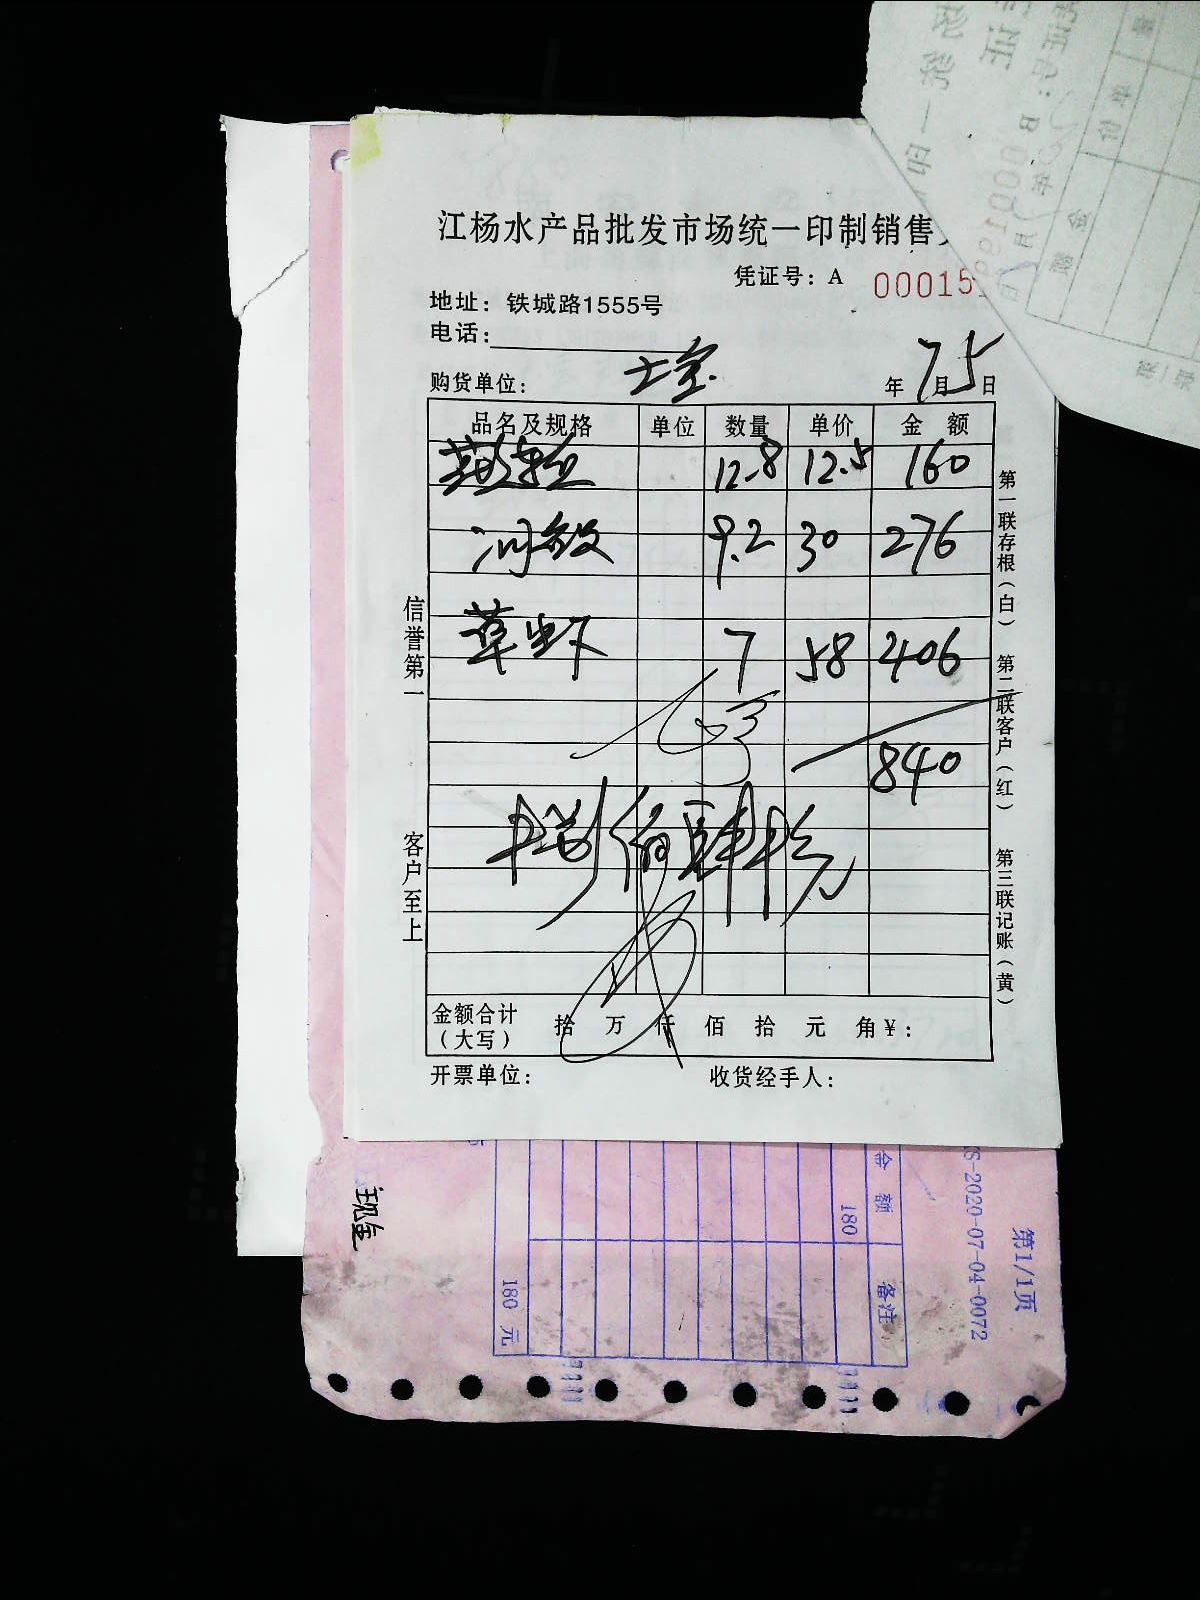 江杨水产品批发市场统一印制销售
凭证号：A 00015
地址：铁城路1555号
电话：
购货单位：
年7月5日
品名及规格 单位 数量 单价 金额
12.8 12.5 160
9.2 30 276
草虾 7 58 406
840
捌佰肆拾元
金额合计（大写） 拾 万 仟 佰 拾 元 角￥：
开票单位： 收货经手人：
信誉第一 客户至上
第一联存根（白） 第二联客户（红） 第三联记账（黄）
现金
金额 备注
180
180 元
S-2020-07-04-0072
第1/1页